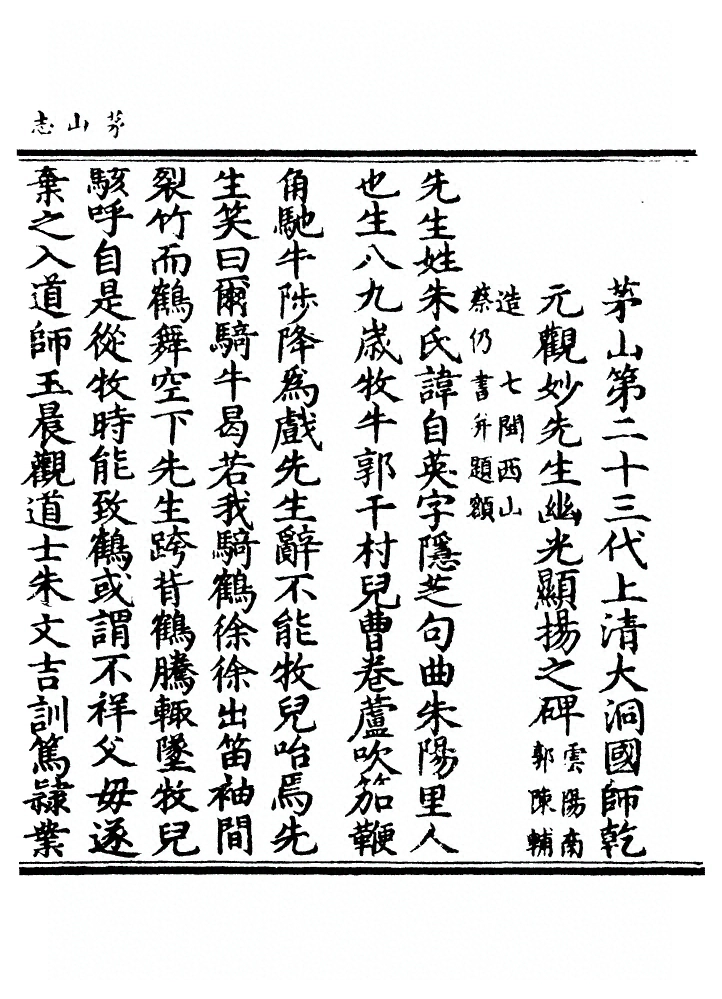 茅山志
茅山第二十三代上清大洞國師乾
元觀妙先生幽光顯揚之碑雲陽南郭陳輔
造七閩西山蔡仍書并題額
先生姓朱氏諱自英字隱芝句曲朱陽里人
也生八九歲牧牛郭千村兒曹卷蘆吹笳鞭
角馳牛陟降為戲先生辭不能牧兒咍焉先
生笑曰爾騎牛曷若我騎鶴徐徐出笛袖間
裂竹而鶴舞空下先生跨背鶴騰輙墜牧兒
駭呼自是從牧時能致鶴或謂不祥父毋遂
棄之入道師玉晨觀道士朱文吉訓篤隷業